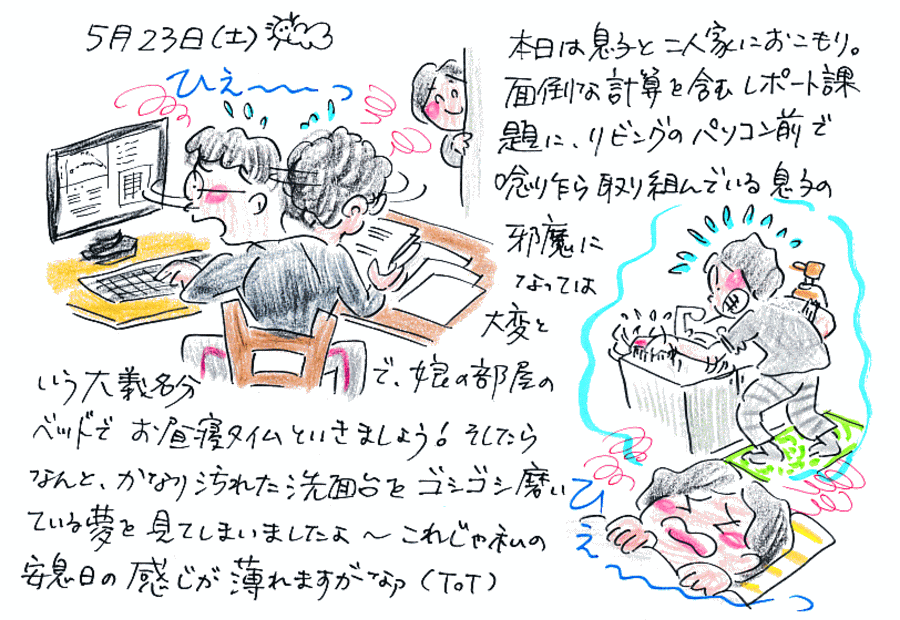 5月23日(土)
ひぇ〜〜っ
本日は息子と二人家におこもり。
面倒な計算を含むレポート課
題に、リビングのパソコン前で
唸り乍ら取り組んでいる息子の
邪魔に
なっては
大変と
いう大義名分で、娘の部屋の
ベッドでお昼寝タイムといきましょう!そしたら
なんと、かなり汚れた洗面台をゴシゴシ磨い
ている夢を見てしまいましたよ〜これじゃ私の
安息日の感じが薄れますがなァ(ToT)
ひぇ〜っ